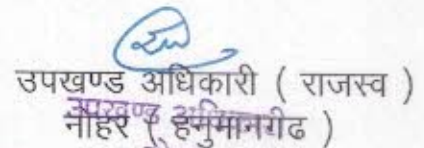 उपखण्ड अधिकारी ( राजस्व )
नोहर ( हनुमानगढ )
उपखण्ड